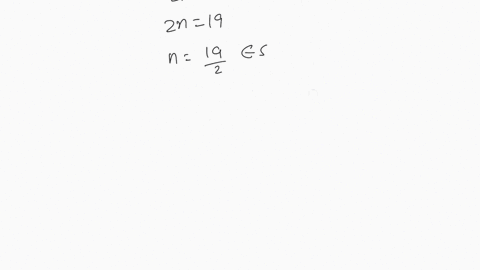 2n = 19
n = 19/2 ∈ S